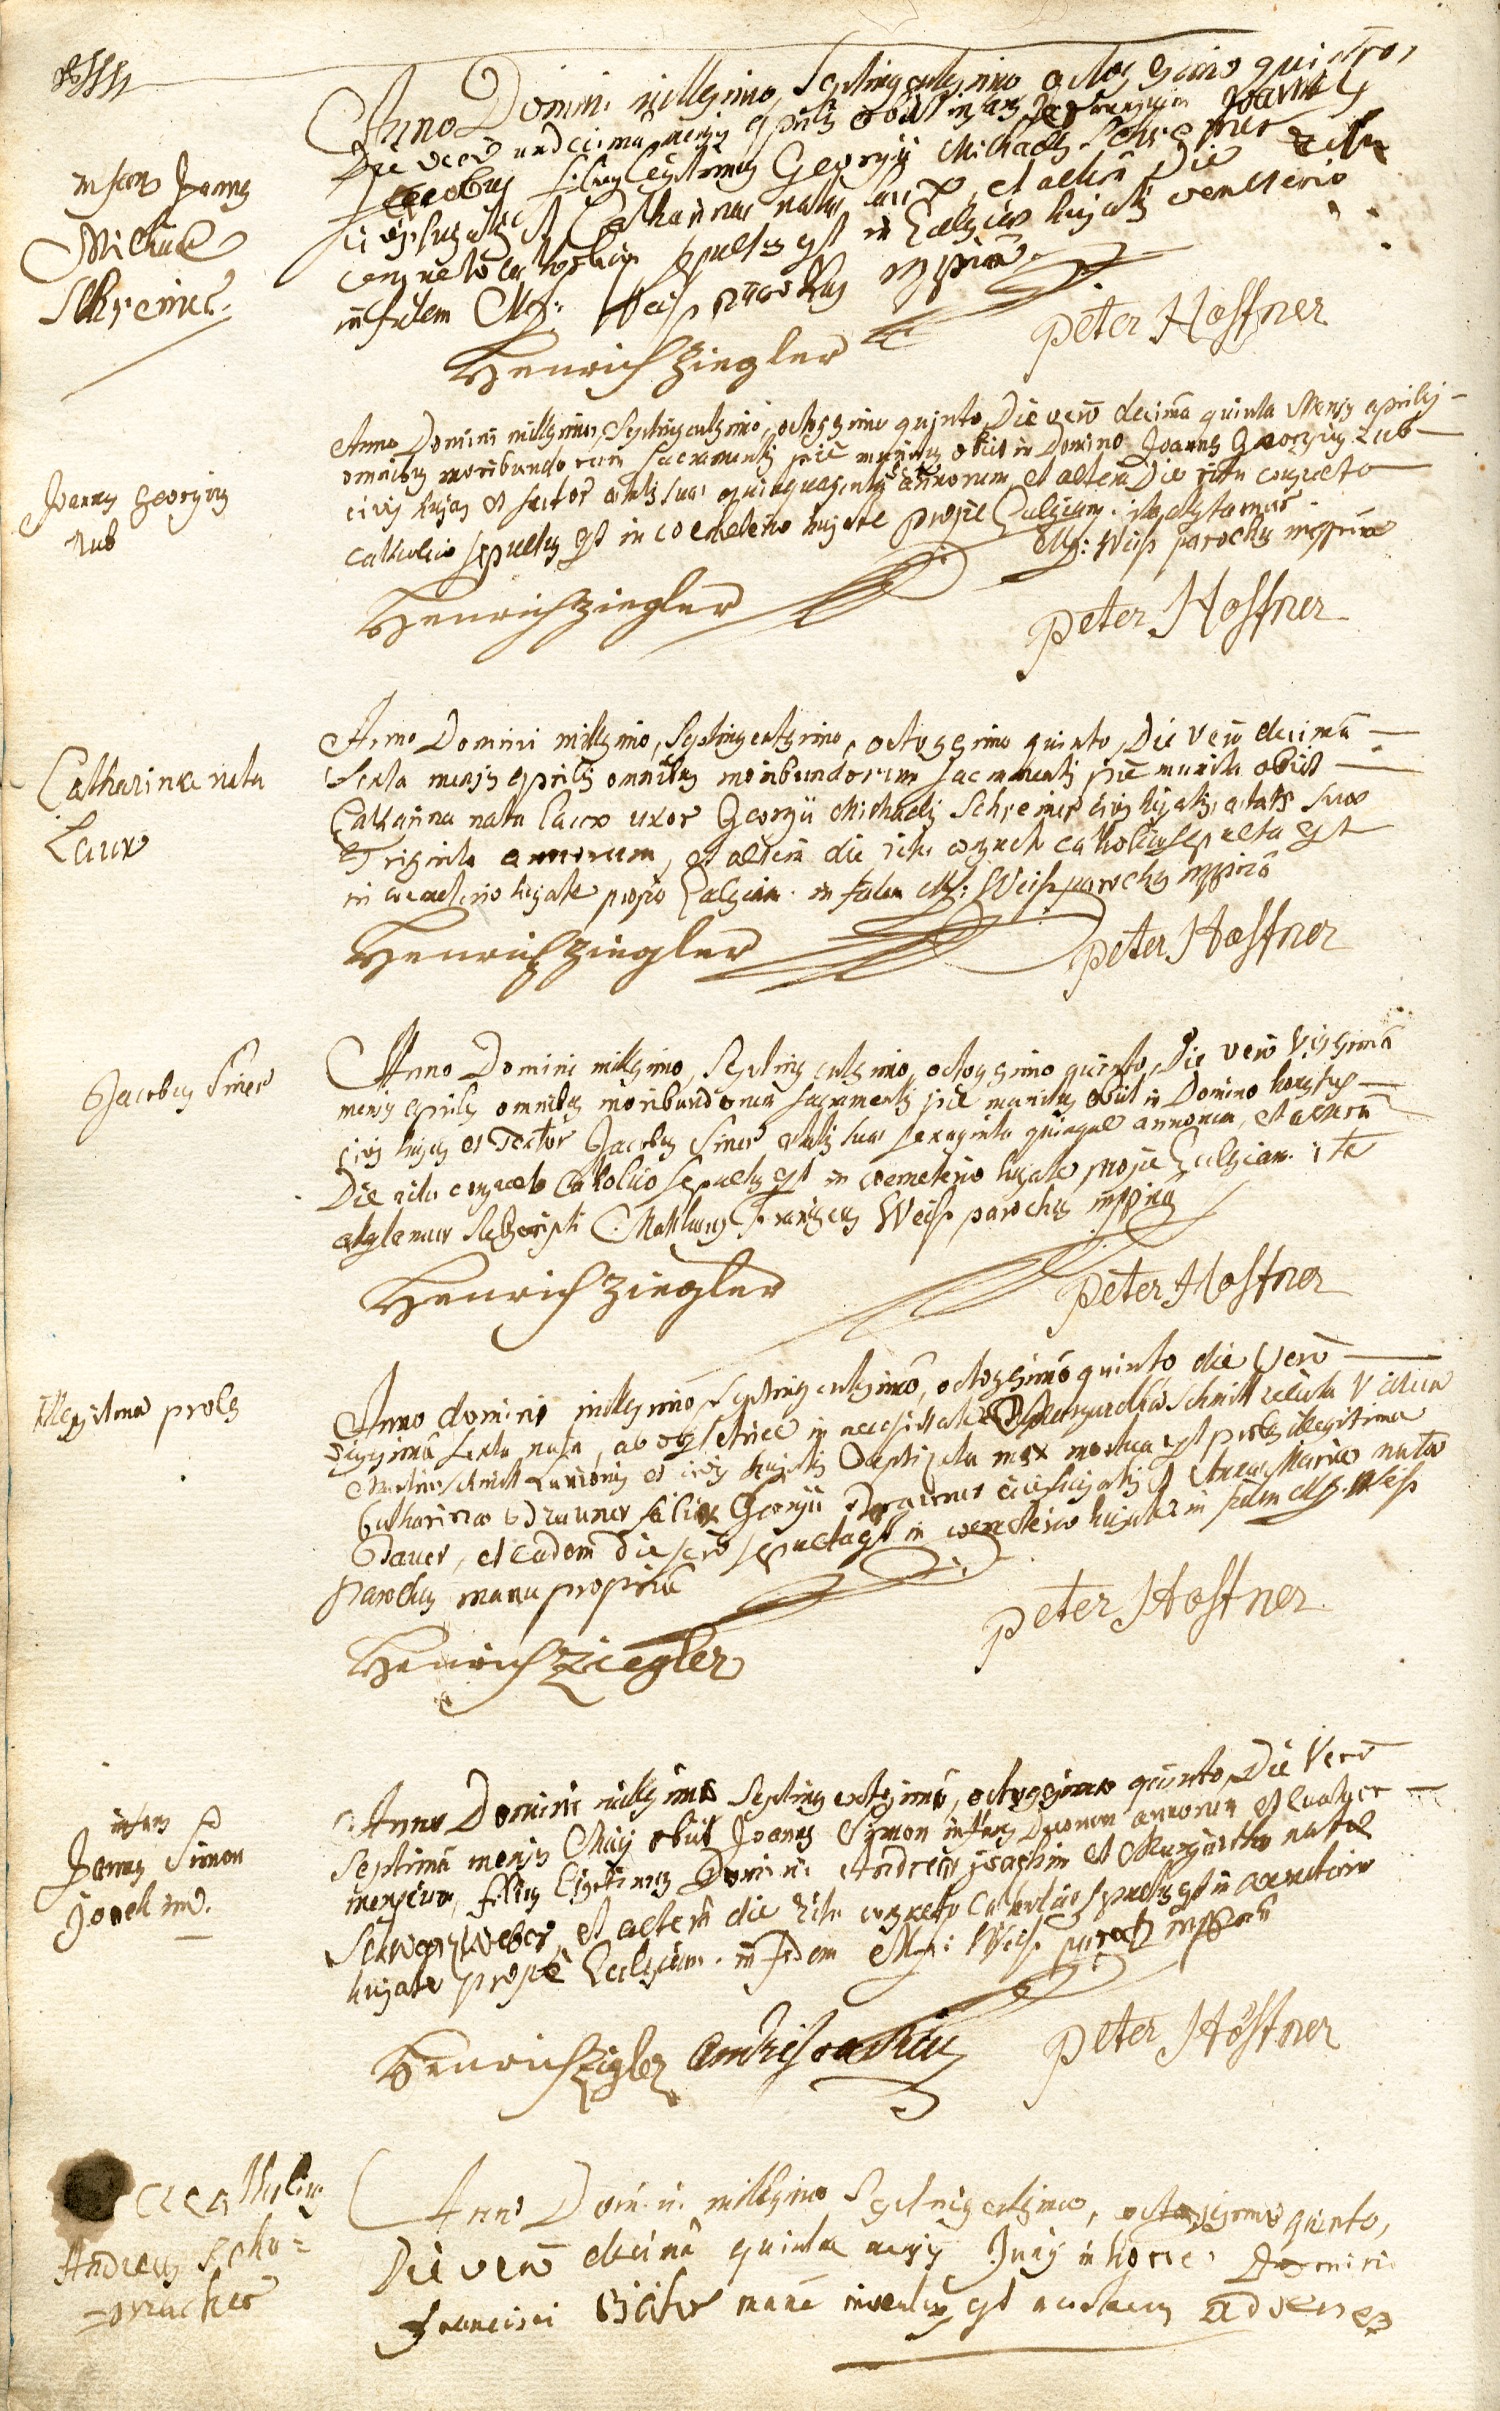 Anno Domini millesimo, septingentesimo octogesimo quinto,
Die vero undecima mensis aprilis obiit infans Joannes
infans Joannes
Jacobus filius legitimus Georgii Michaelis Schreiner
Michael
civis hujatis et Catharinae natae laux, et altera Die ritu
Schreiner.
consueto catholico sepultus est in Ecclesiae hujatis coemeterio
in fidem Mf: Weiß parochus mppria
Henrich Ziegler
Peter Hoffner
Anno Domini millesimo, Septingentesimo, octogesimo quinto, Die vero decima quinta Mensis aprilis
omnibus moribundorum sacramentis pie munitus obiit in Domino Joannes Georgius Rub
Joannes Georgius
Rub
civis hujas et sartor aetatis suae quinquaginta annorum, et altera Die ritu consueto
catholico sepultus est in coemeterio hujate prope Ecclesiam. ita attestamur
Mf: Weiß parochus mppria
Henrich Ziegler
Peter Hoffner
Anno Domini millesimo, Septingentesimo, octogesimo quinto, Die vero decima
Catharina nata
Laux
Sexta mensis aprilis omnibus moribundorum sacramentis pie munita obiit
Catharina nata laux uxor Georgii Michaelis Schreiner civis hujatis aetatis suae
Triginta annorum, et altera die ritu consueto catholico sepulta est
in coemeterio hujate prope Ecclesiam. in fidem Mf: Weiß parochus mppria
Henrich Ziegler
Peter Hoffner
Jacobus Siner
Anno Domini millesimo, Septingentesimo, octogesimo quinto, Die vero vigesima
mensis aprilis omnibus moribundorum sacramentis pie munitus obiit in Domino honestus
civis hujas et Textor Jacobus Siner aetatis suae sexaginta quinque annorum, et altera
Die ritu consueto Catholico sepultus est in coemeterio hujate prope Ecclesiam. ita
attestamur subscripti Mathaeus Franciscus Weiß parochus mppria
Henrich Ziegler
Peter Hoffner
Illegitima proles
Anno domini millesimo septingentesimo, octogesimo quinto die vero
vigesima sexta nata, ab obstetrice in necessitate Margaretha Schmitt relicta vidua
Schmitt et civis hujatis baptizata mox mortua est proles illegitima
Catharinae Brauner filiae Georgii Brauner civis hujatis et Annae Mariae nata
Bauer, et eadem die sero sepulta est in coemeterio hujate in fidem Mf. Weiß
Parochus manu propria
Henrich Ziegler
Peter Hoffner
infans
Joannes Simon
Joachim.
Anno Domini millesimo Septingentesimo, octogesimo quinto, Die Vero
Septima mensis Maij obiit Joannes Simon infans Duorum annorum et quatuor
mensium, filius legitimus Domini Andreae Joachim et Margaretha natae
Schwarzweber, et altera die ritu consueto catholico sepultus est in coemeterio
hujate prope Ecclesiam. in fidem Mf: Weiß paroch mppria
Henrich Zigler
Peter Höffner
Andreas Schu=
=macher
Anno Domini millesimo Septingentesimo, octogesimo quinto,
Die vero decima quinta mensis Junij in horreo Domini
Francisci mane inventus est mortuus advena